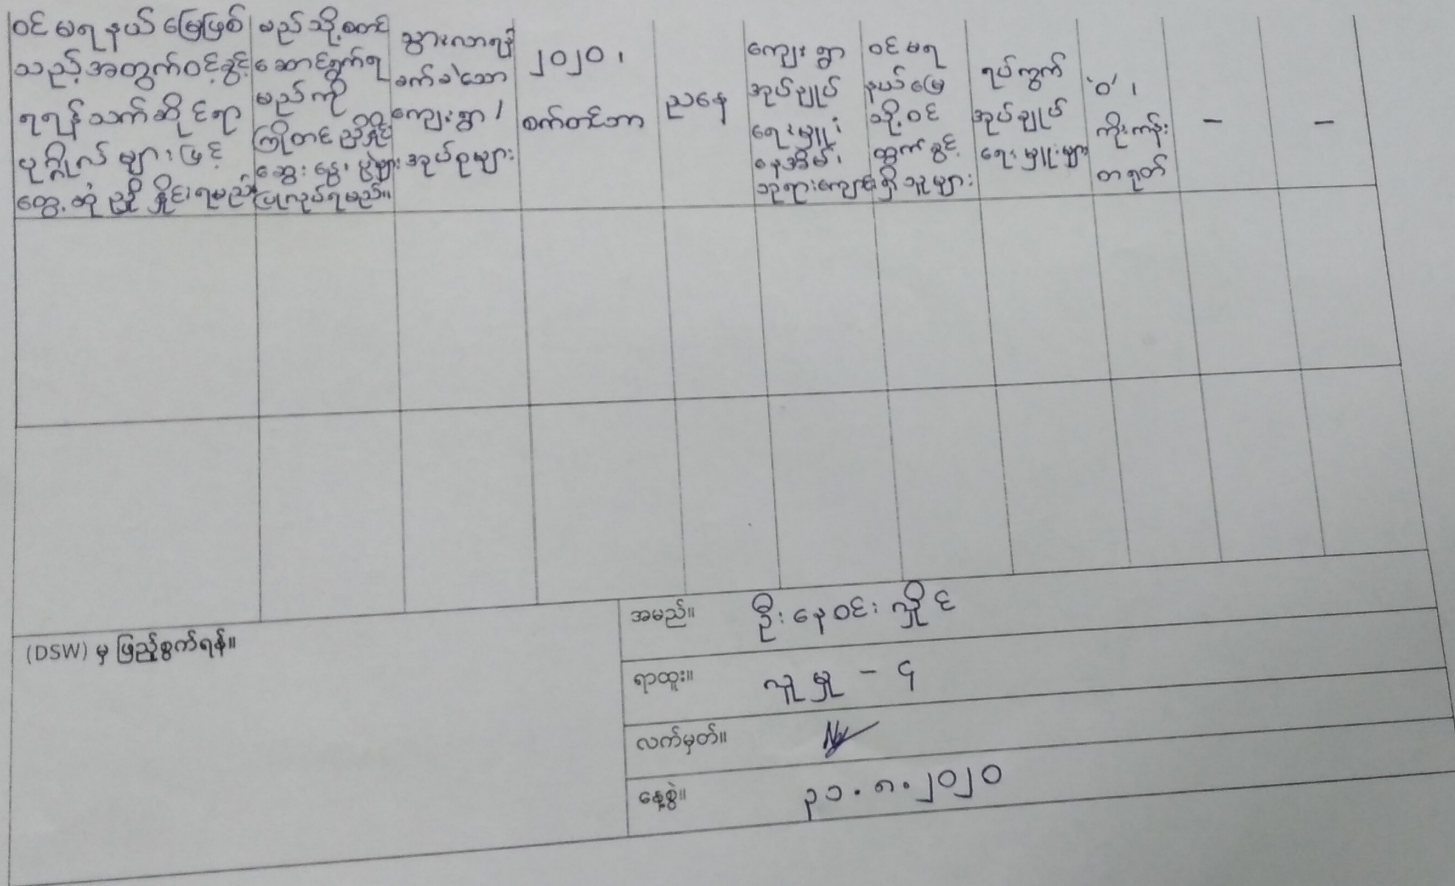 ဝင်မရနယ်မြေဖြစ်
သည့်အတွက်ဝင်ခွင့်
ရရန်သက်ဆိုင်ရာ
ပုဂ္ဂိုလ်များဖြင့်
တွေ့ဆုံညှိနှိုင်းရမည်
မည်သို့စတင်
ဆောင်ရွက်ရ
မည်ကို
ကြိုတင်ညှိနှိုင်း
ဆွေးနွေးပွဲများ
ပြုလုပ်ရမည်။
သွားလာရန်
ခက်ခဲသော
ကျေးရွာ/
အုပ်စုများ
၂၀၂၀၊
စက်တင်ဘာ
ညနေ
ကျေးရွာ
အုပ်ချုပ်
ရေးမှူး
နေအိမ်၊
ဘုရားကျောင်း
ဝင်မရ
နယ်မြေ
သို့ဝင်
ထွက်ခွင့်
ရှိသူများ
ရပ်ကွက်
အုပ်ချုပ်
ရေးမှူးများ
'ဝ'၊
ကိုးကန့်၊
တရုတ်
–
–
(DSW) မှ ဖြည့်စွက်ရန်။
အမည်။ ဦးနေဝင်းလှိုင်
ရာထူး။ လူမှု – ၄
လက်မှတ်။
နေ့စွဲ။ ၃၁.၈.၂၀၂၀